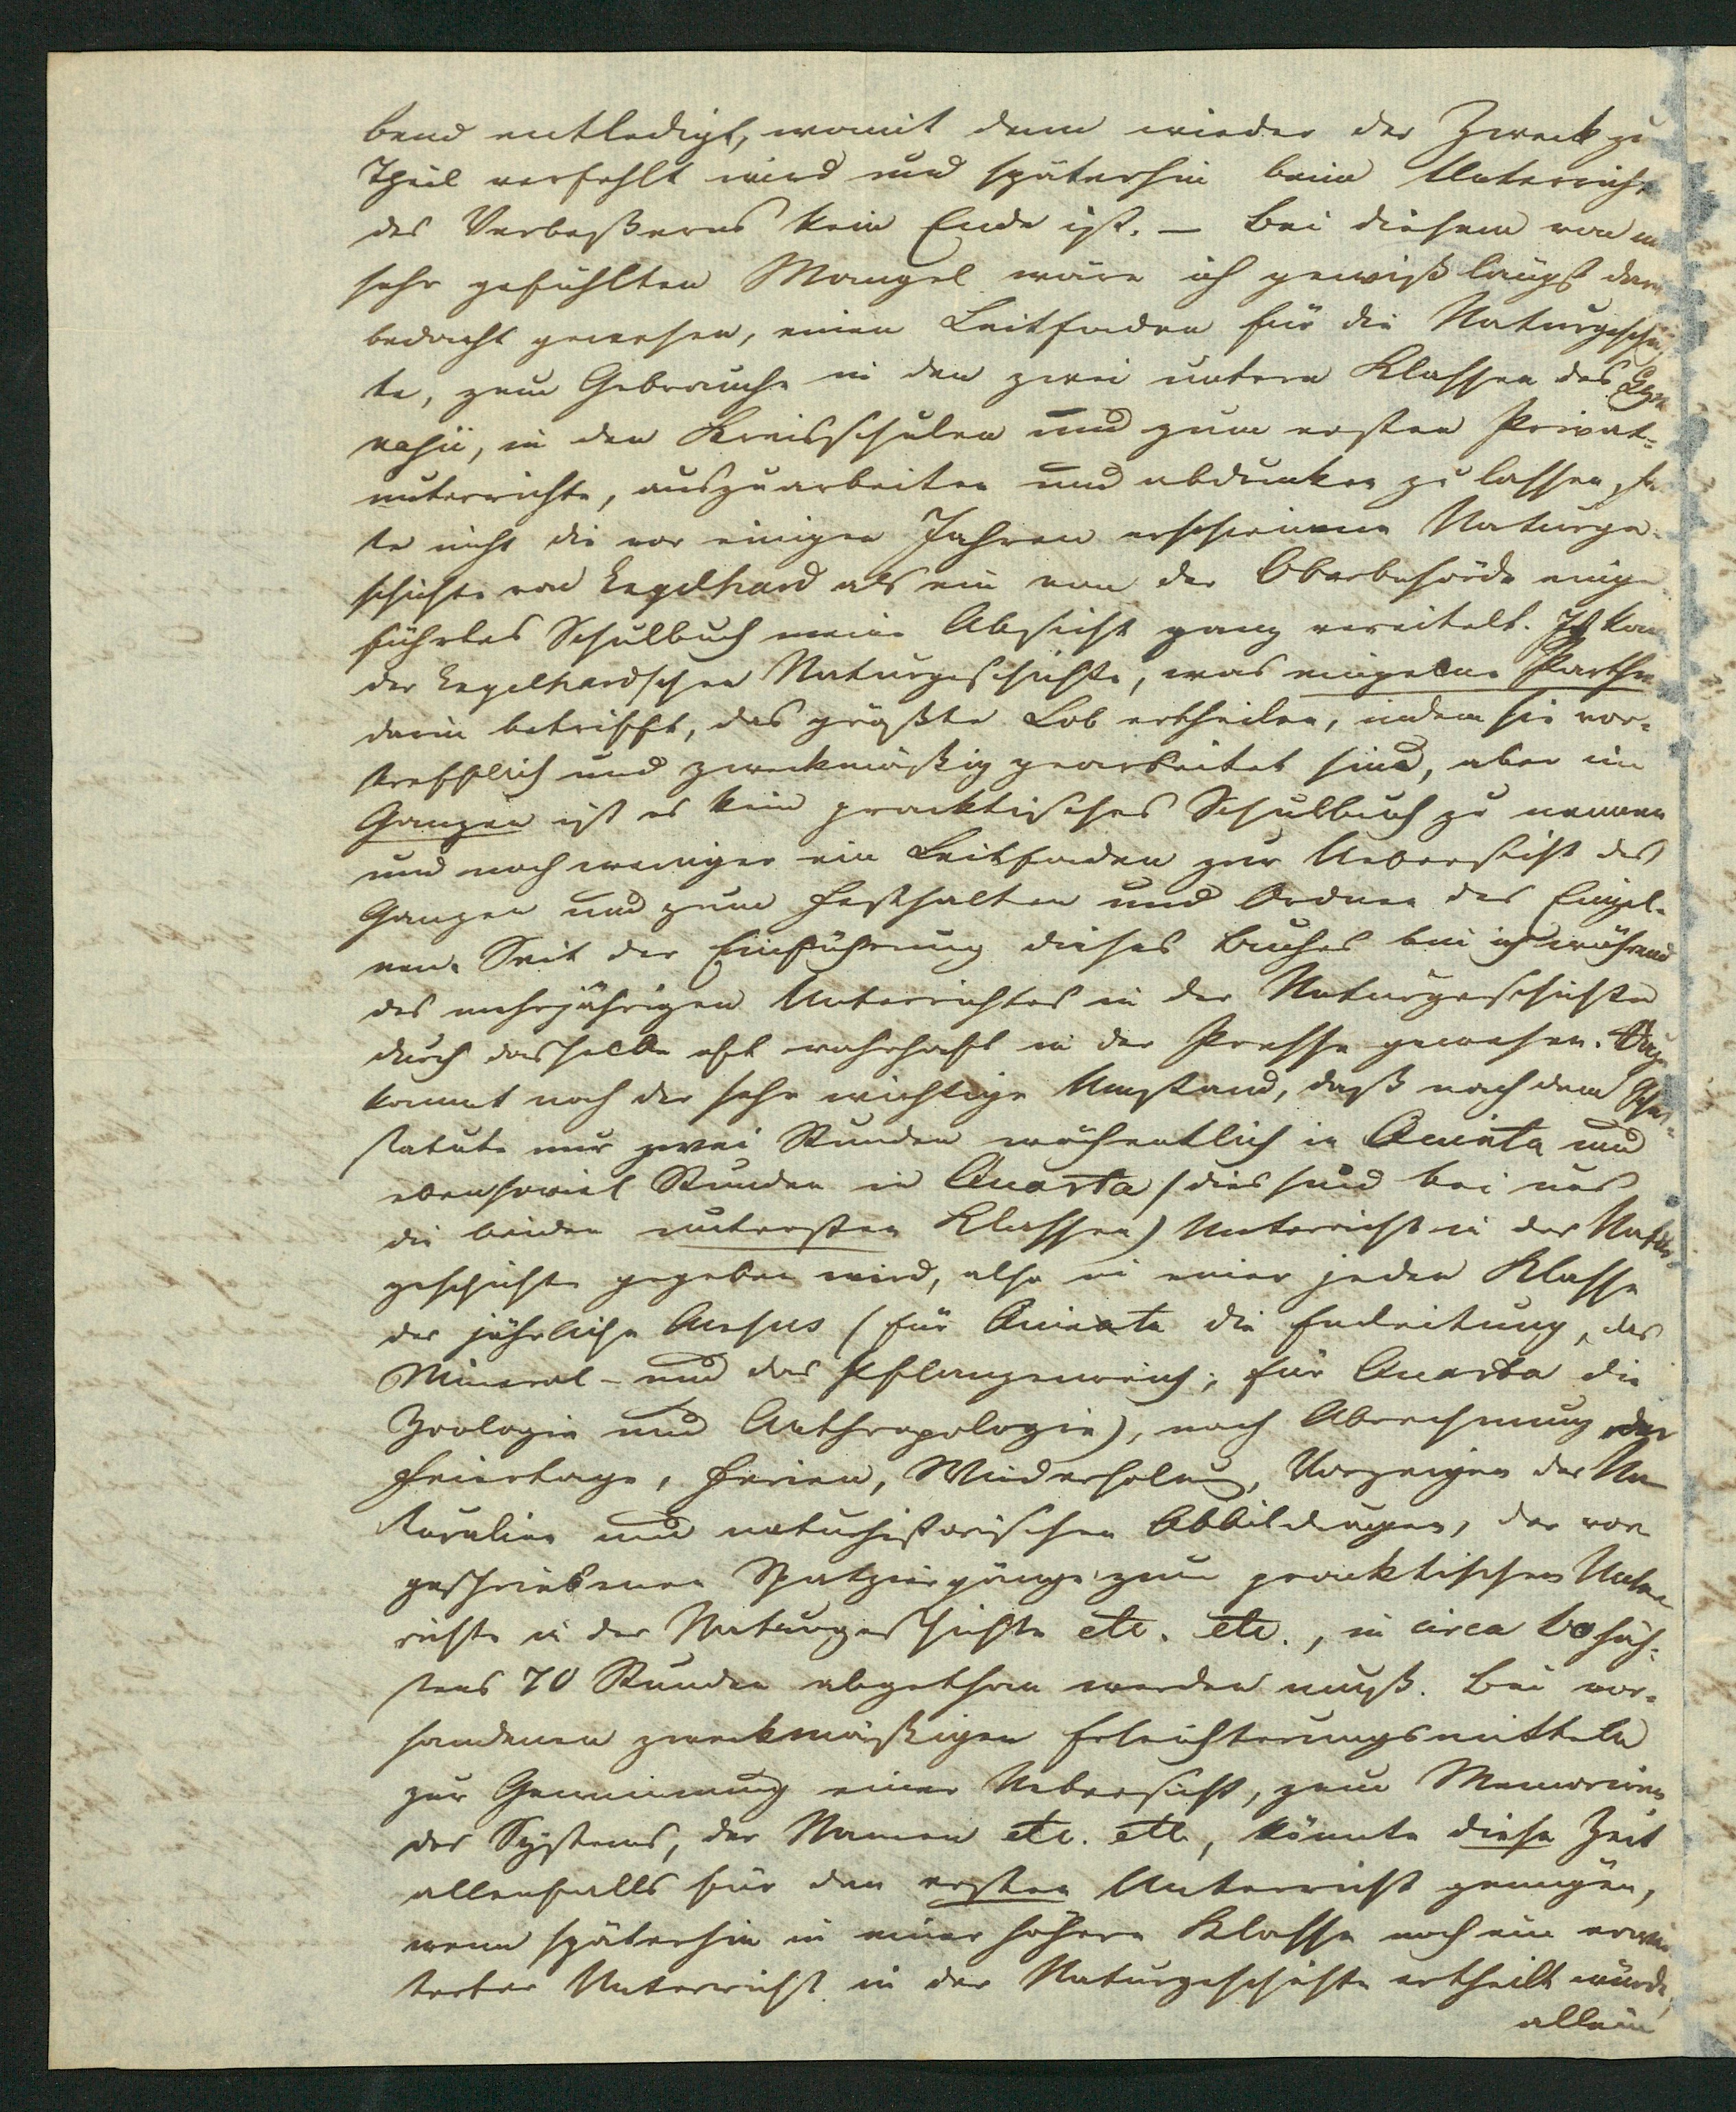 bend entledigt, womit denn wieder der Zweck zu
Theil verfehlt wird und späterhin beim Unterricht
des Verbeßerns kein Ende ist. – Bei diesem von m
sehr gefühlten Mangel wäre ich gewiß längst dar
bedacht gewesen, einen Leitfaden für die Naturgeschich
te, zum Gebrauche in den zwei untern Klassen des Gym
nasii, in den Kreisschulen und zum ersten Privat-
unterrichte, auszuarbeiten und abdrucken zu lassen, hä
te nicht die vor einigen Jahren erschienene Naturge-
schichte von Engelhard als ein von der Oberbehörde einge
führtes Schulbuch meine Absicht ganz vereitelt. Ich kan
der Engelhardschen Naturgeschichte, was einzelne Parthie
darin betrifft, das größte Lob ertheilen, indem sie vor-
trefflich und zweckmäßig gearbeitet sind, aber im
Ganzen ist es kein practisches Schulbuch zu nennen
und noch weniger ein Leitfaden zur Uebersicht des
Ganzen und zum Festhalten und Ordnen des Einzel-
nen. Seit der Einführung dieses Buches bin ich während
des mehrjährigen Unterrichtes in der Naturgeschichte
durch dasselbe oft wahrhaft in der Presse gewesen. Dazu
kommt noch der sehr wichtige Umstand, daß nach dem Schul-
statute nur zwei Stunden wöchentlich in Quinta und
ebensoviel Stunden in Quarta (dies sind bei uns
die beiden untersten Klassen) Unterricht in der Natur-
geschichte gegeben wird, also in einer jeden Klasse
der jährliche Cursus (für Quinta die Einleitung, das
Mineral- und das Pflanzenreich; für Quarta die
Zoologie und Anthropologie), nach Abrechnung der
Feiertage, Ferien, Wiederholung, Vorzeigen der Na
turalien und naturhistorischen Abbildungen, der vor
geschriebenen Spatziergänge zum practischen Unter
richte in der Naturgeschichte etc. etc., in circa 60 höch-
stens 70 Stunden abgethan werden muß. Bei vor-
handenen zweckmäßigen Erleichterungsmitteln
zur Gewinnung einer Uebersicht, zum Memoriren
des Systems, der Namen etc. etc., könnte diese Zeit
allenfalls für den ersten Unterricht genügen,
wenn späterhin in einer höhern Klasse noch ein erwei
terter Unterricht in der Naturgeschichte ertheilt würde,
allein